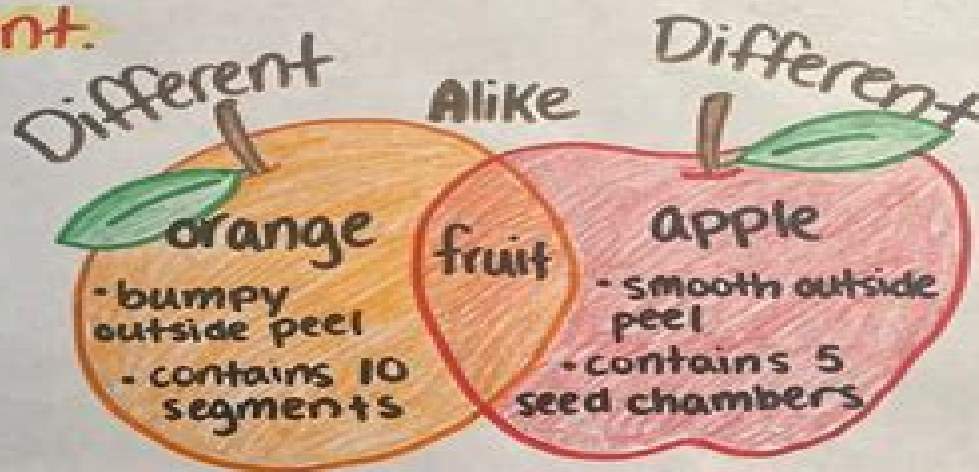 nt.
Different
Alike
Different
orange
- bumpy
outside peel
- contains 10
segments
fruit
apple
- smooth outside
peel
- contains 5
seed chambers